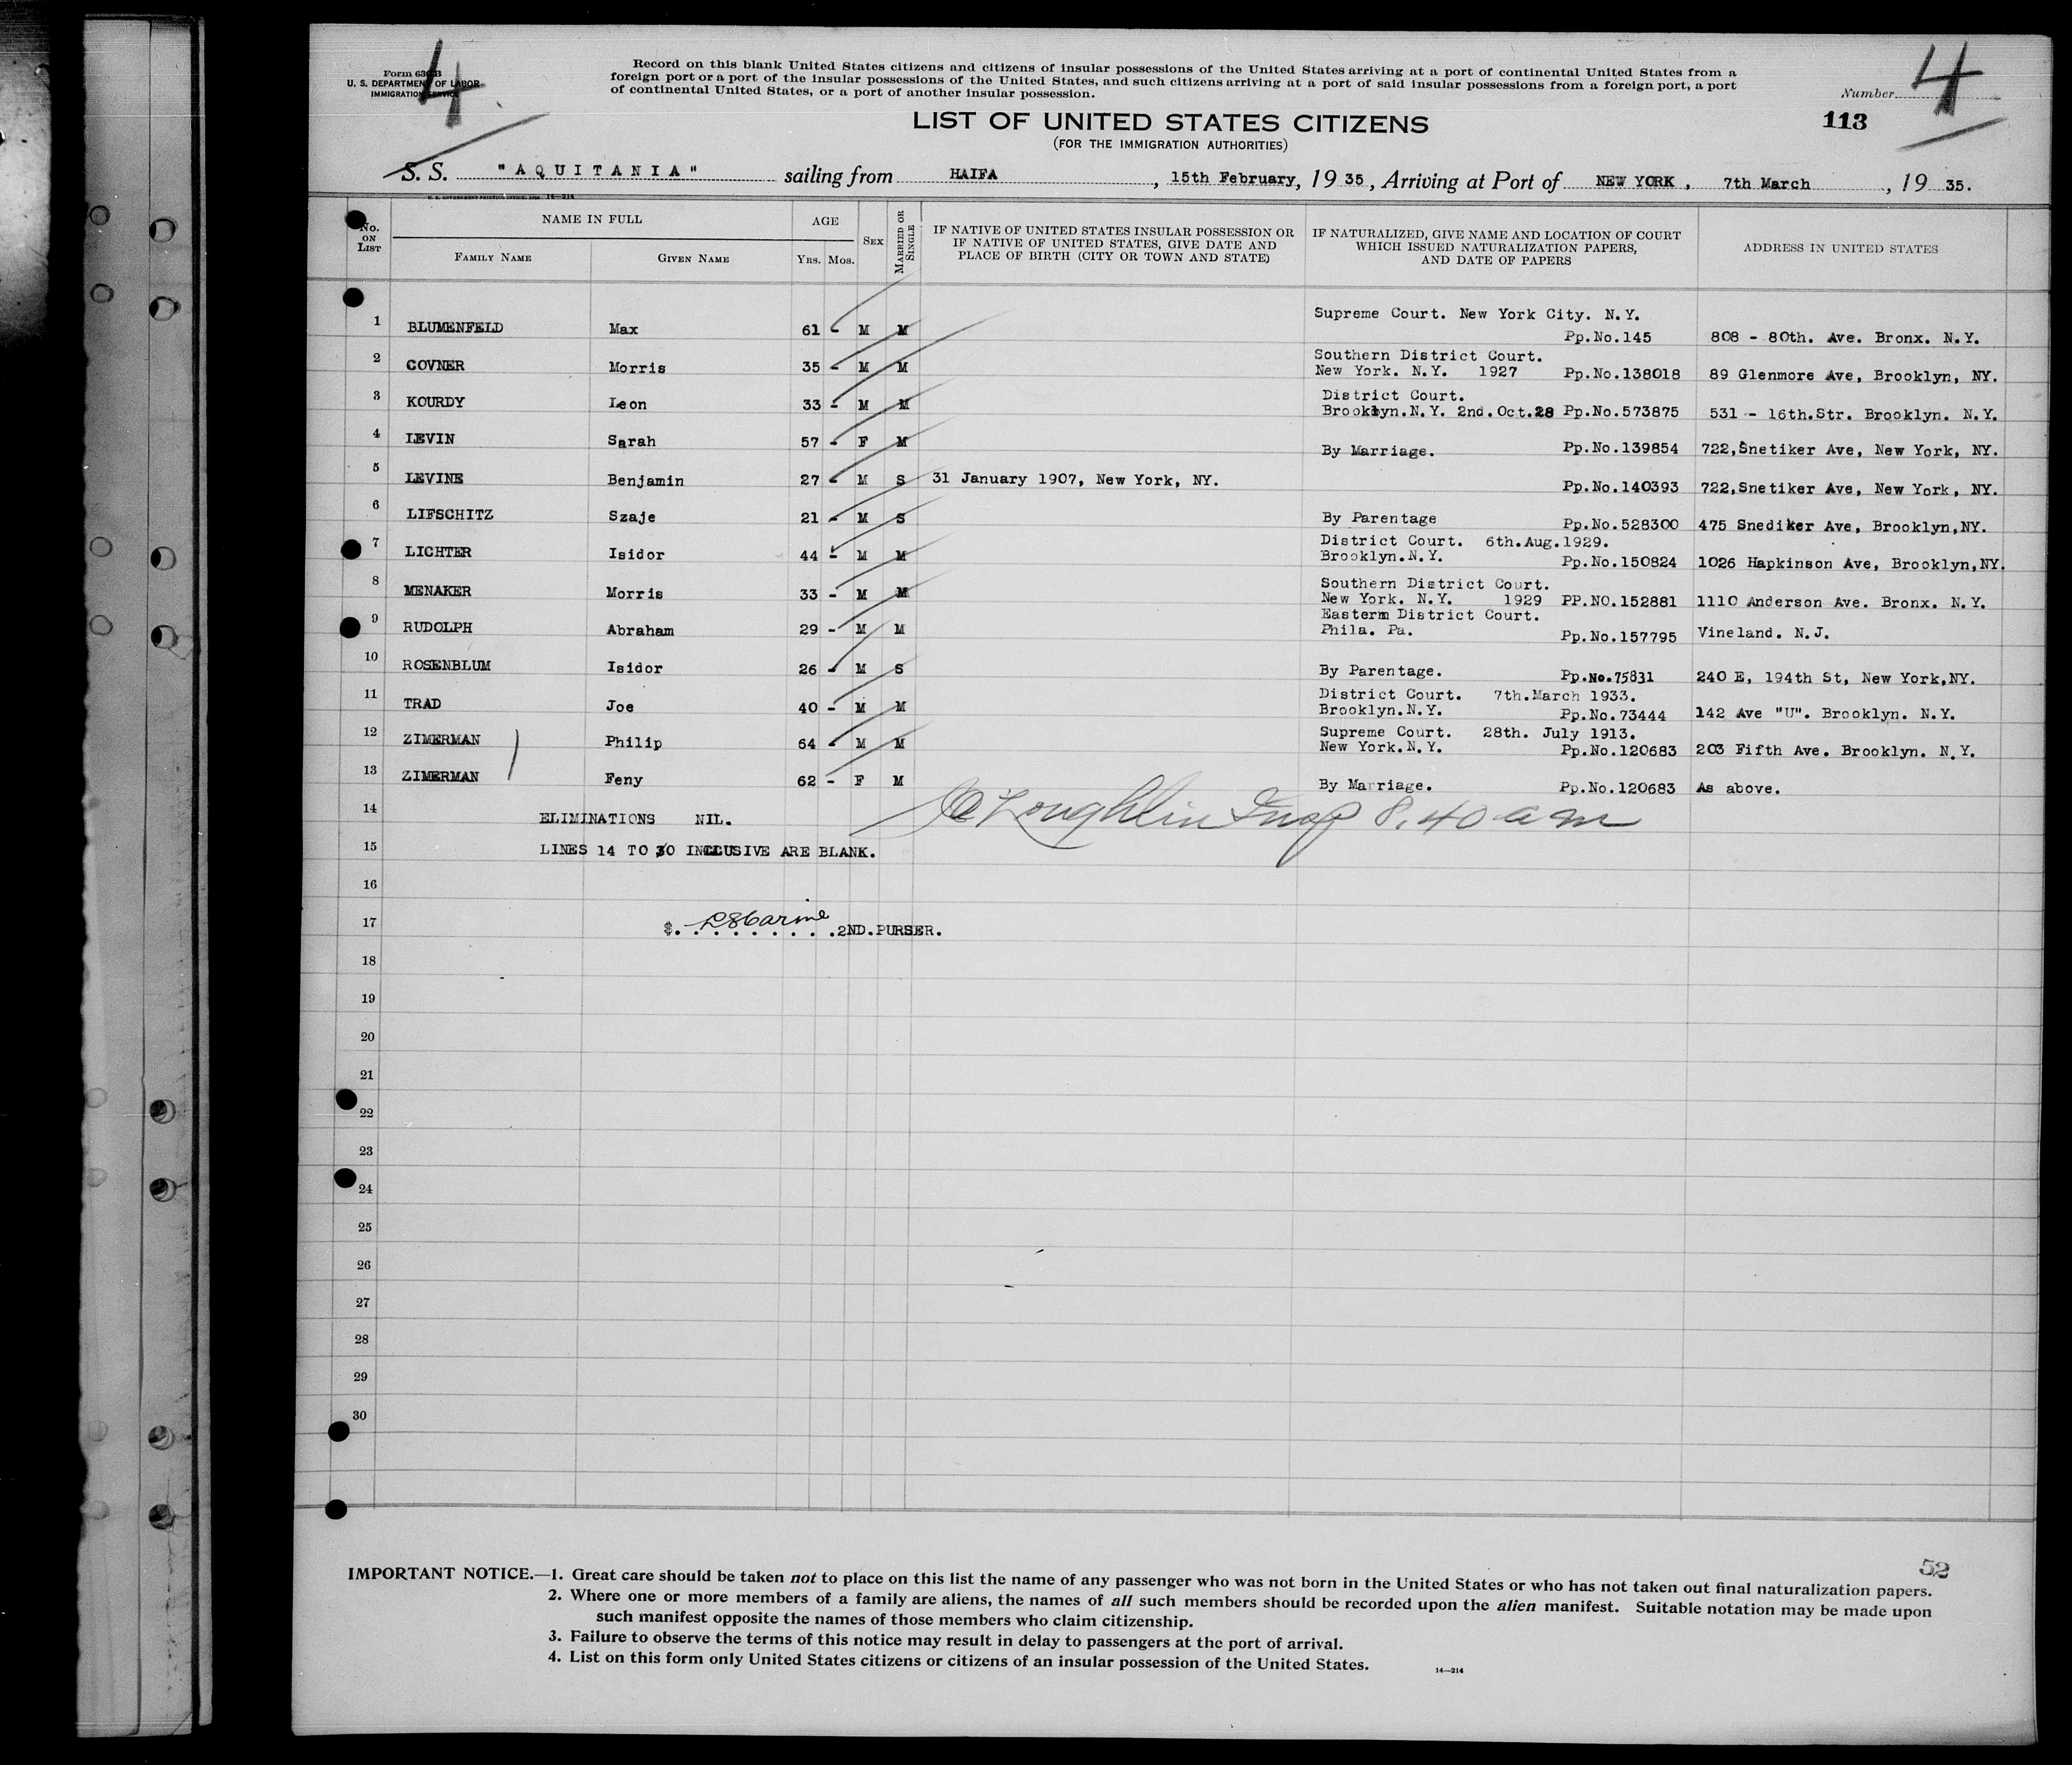 4 4
Form 630 B
U. S. DEPARTMENT OF LABOR
IMMIGRATION SERVICE
Record on this blank United States citizens and citizens of insular possessions of the United States arriving at a port of continental United States from a
foreign port or a port of the insular possessions of the United States, and such citizens arriving at a port of said insular possessions from a foreign port, a port
of continental United States, or a port of another insular possession.
Number
113
LIST OF UNITED STATES CITIZENS
(FOR THE IMMIGRATION AUTHORITIES)
S. S. "AQUITANIA" sailing from HAIFA, 15th February, 1935, Arriving at Port of NEW YORK, 7th March, 1935.
No. ON LIST NAME IN FULL FAMILY NAME GIVEN NAME AGE YRS. MOS. SEX MARRIED OR SINGLE IF NATIVE OF UNITED STATES INSULAR POSSESSION OR IF NATIVE OF UNITED STATES, GIVE DATE AND PLACE OF BIRTH (CITY OR TOWN AND STATE) IF NATURALIZED, GIVE NAME AND LOCATION OF COURT WHICH ISSUED NATURALIZATION PAPERS, AND DATE OF PAPERS ADDRESS IN UNITED STATES
1 BLUMENFELD Max 61 - M M Supreme Court. New York City. N.Y. Pp.No.145 808 - 80th. Ave. Bronx. N.Y.
2 COVNER Morris 35 - M M Southern District Court. New York. N.Y. 1927 Pp.No.138018 89 Glenmore Ave, Brooklyn, NY.
3 KOURDY Leon 33 - M M District Court. Brooklyn.N.Y. 2nd.Oct.28 Pp.No.573875 531 - 16th.Str. Brooklyn. N.Y.
4 LEVIN Sarah 57 - F M By Marriage. Pp.No.139854 722,Snetiker Ave, New York, NY.
5 LEVINE Benjamin 27 - M S 31 January 1907, New York, NY. Pp.No.140393 722,Snetiker Ave, New York, NY.
6 LIFSCHITZ Szaje 21 - M S By Parentage Pp.No.528300 475 Snediker Ave, Brooklyn,NY.
7 LICHTER Isidor 44 - M M District Court. 6th.Aug.1929. Brooklyn.N.Y. Pp.No.150824 1026 Hapkinson Ave, Brooklyn,NY.
8 MENAKER Morris 33 - M M Southern District Court. New York. N.Y. 1929 PP.NO.152881 1110 Anderson Ave. Bronx. N.Y.
9 RUDOLPH Abraham 29 - M M Easterm District Court. Phila. Pa. Pp.No.157795 Vineland. N.J.
10 ROSENBLUM Isidor 26 - M S By Parentage. Pp.No.75831 240 E, 194th St, New York,NY.
11 TRAD Joe 40 - M M District Court. 7th.March 1933. Brooklyn.N.Y. Pp.No.73444 142 Ave "U". Brooklyn. N.Y.
12 ZIMERMAN Philip 64 - M M Supreme Court. 28th. July 1913. New York.N.Y. Pp.No.120683 203 Fifth Ave. Brooklyn. N.Y.
13 ZIMERMAN Feny 62 - F M By Marriage. Pp.No.120683 As above.
14 ELIMINATIONS NIL. Loughlin Insp 8.40 a m
15 LINES 14 TO 30 INCLUSIVE ARE BLANK.
16
17 2ND.PURSER.
18
19
20
21
22
23
24
25
26
27
28
29
30
52
IMPORTANT NOTICE.—1. Great care should be taken not to place on this list the name of any passenger who was not born in the United States or who has not taken out final naturalization papers.
2. Where one or more members of a family are aliens, the names of all such members should be recorded upon the alien manifest. Suitable notation may be made upon
such manifest opposite the names of those members who claim citizenship.
3. Failure to observe the terms of this notice may result in delay to passengers at the port of arrival.
4. List on this form only United States citizens or citizens of an insular possession of the United States.
14—214